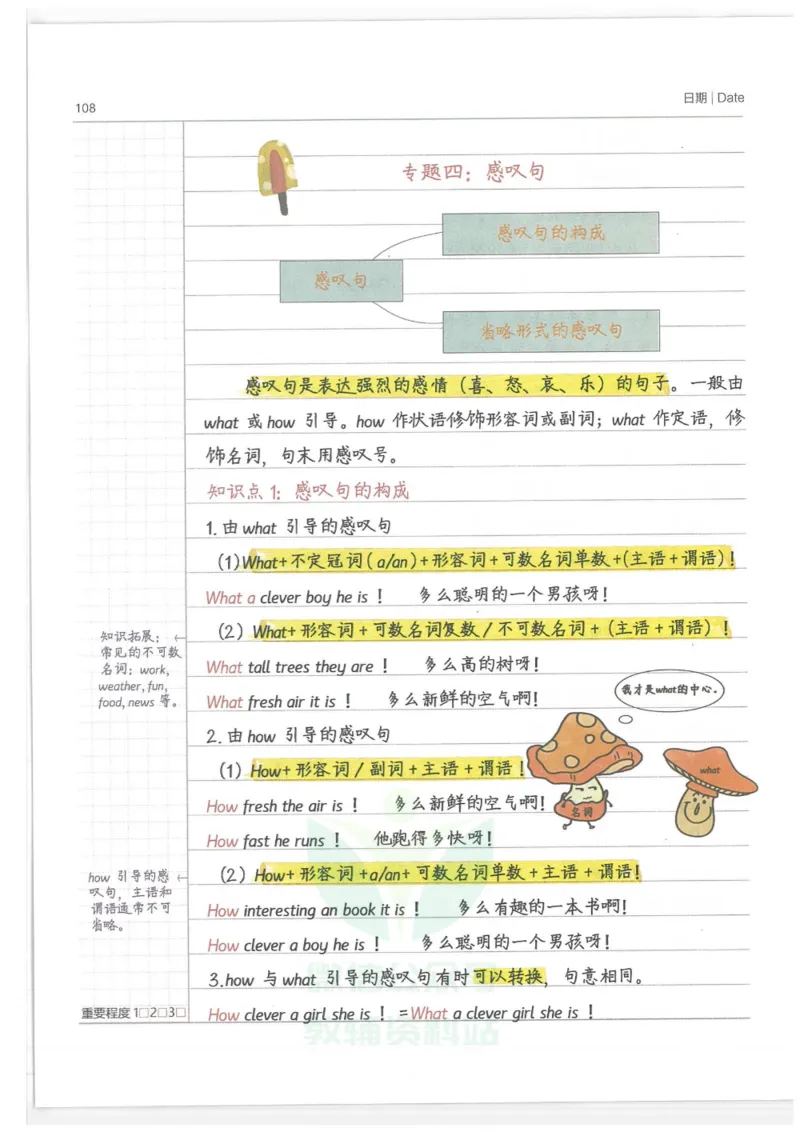 108
日期 | Date
专题四：感叹句
感叹句的构成
感叹句
省略形式的感叹句
感叹句是表达强烈的感情（喜、怒、哀、乐）的句子。一般由
what 或 how 引导。how 作状语修饰形容词或副词；what 作定语，修
饰名词，句末用感叹号。
知识点 1：感叹句的构成
1. 由 what 引导的感叹句
(1)What+不定冠词(a/an)+形容词+可数名词单数+(主语+谓语)！
What a clever boy he is！ 多么聪明的一个男孩呀！
知识拓展：
常见的不可数
名词：work,
weather, fun,
food, news 等。
（2）What+ 形容词 + 可数名词复数 / 不可数名词 + （主语 + 谓语）！
What tall trees they are！ 多么高的树呀！
What fresh air it is！ 多么新鲜的空气啊！
我才是what的中心。
2. 由 how 引导的感叹句
（1）How+ 形容词 / 副词 + 主语 + 谓语！
what
名词
How fresh the air is！ 多么新鲜的空气啊！
How fast he runs！ 他跑得多快呀！
how 引导的感
叹句，主语和
谓语通常不可
省略。
（2）How+ 形容词 +a/an+ 可数名词单数 + 主语 + 谓语！
How interesting an book it is！ 多么有趣的一本书啊！
How clever a boy he is！ 多么聪明的一个男孩呀！
3.how 与 what 引导的感叹句有时可以转换，句意相同。
How clever a girl she is！=What a clever girl she is！
重要程度 1□2□3□
教辅资料站